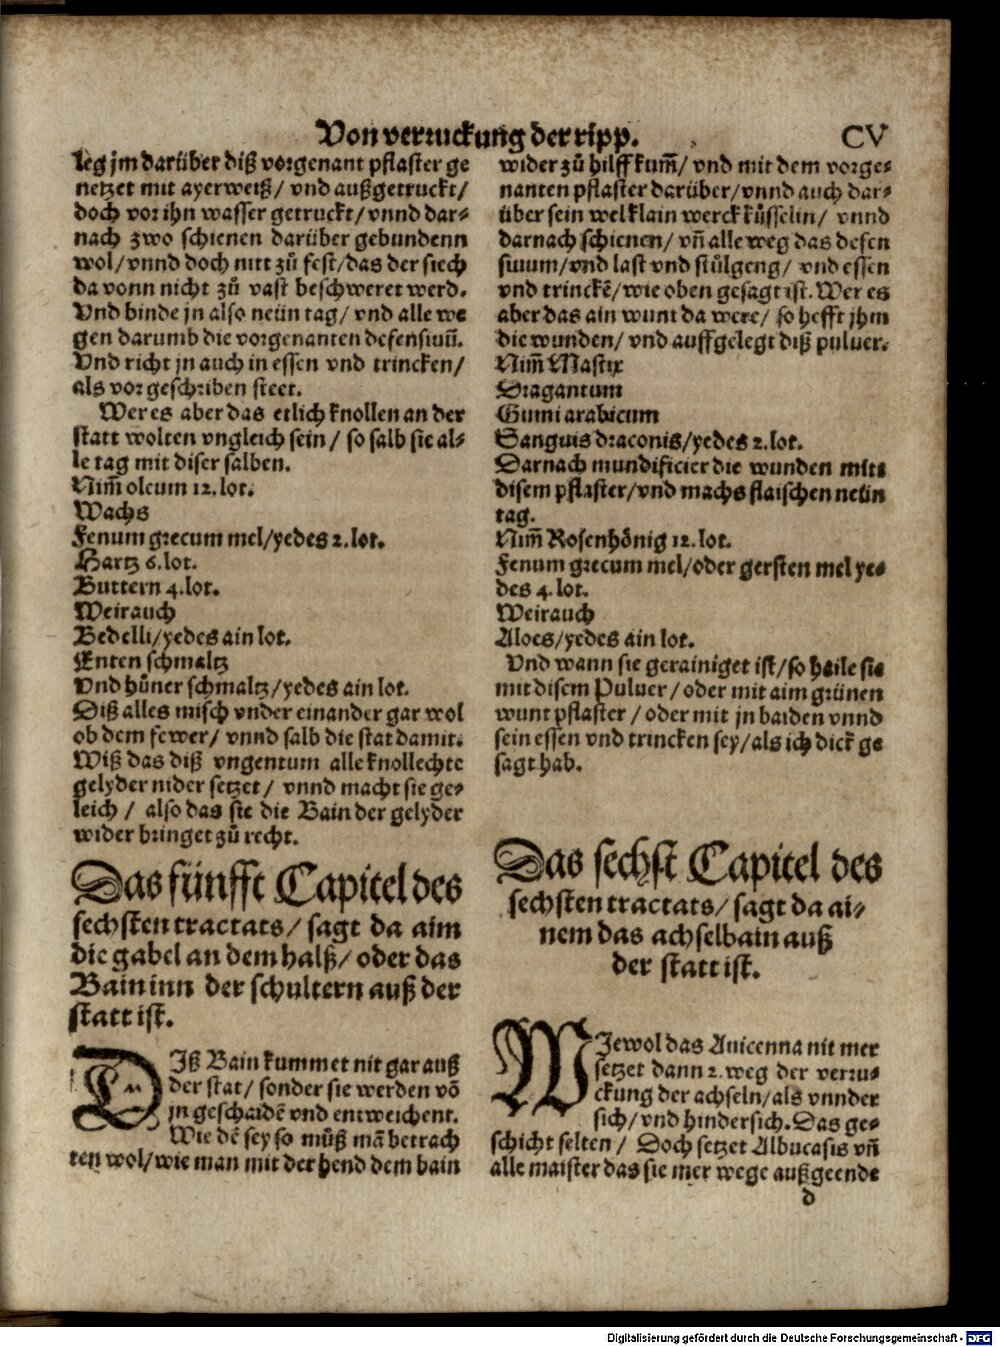 Von verruckung der ripp.
CV
leg jm darüber diß vorgenant pflaster ge
netzet mit ayerweiß/ vnd außgetruckt/
doch vor ihn wasser getruckt/vnnd dar-
nach zwo schienen darüber gebundenn
wol/vnnd doch nitt zů fest/das der siech
da vonn nicht zů vast beschweret werd.
Vnd binde jn also neün tag/ vnd alle we
gen darumb die vorgenanten defensiuũ.
Vnd richt jn auch in essen vnd trincken/
als vor geschriben steet.
Wer es aber das etlich knollen an der
statt wolten vngleich sein/ so salb sie al-
le tag mit diser salben.
Nim̃ oleum 12.lot.
Wachs
Fenum grecum mel/yedes 2.lot.
Hartz 6.lot.
Buttern 4.lot.
Weirauch
Bedelli/yedes ain lot.
Enten schmaltz
Vnd hůner schmaltz/yedes ain lot.
Diß alles misch vnder einander gar wol
ob dem fewer/ vnnd salb die stat damit.
Wiß das diß vngentum alle knollechte
gelyder nider setzet/ vnnd macht sie ge-
leich / also das sie die Bain der gelyder
wider bringet zů recht.
Das fünfft Capitel des
sechsten tractats/ sagt da aim
die gabel an dem halß/ oder das
Bain inn der schultern auß der
statt ist.
DIß Bain kummet nit gar auß
der stat/ sonder sie werden võ
jn geschaidẽ vnd entweichent.
Wie dẽ sey so můß mã betrach
ten wol/wie man mit der hend dem bain
wider zů hilff kum̃/ vnd mit dem vorge-
nanten pflaster darüber/vnnd auch dar-
über sein wel klain werck küsselin/ vnnd
darnach schienen/ vñ alle weg das defen
siuum/vnd last vnd stůlgeng/ vnd essen
vnd trinckẽ/wie oben gesagt ist. Wer es
aber das ain wunt da were/ so hefft jhm
die wunden/ vnd auffgelegt diß puluer.
Nim̃ Mastix
Dragantum
Gumi arabicum
Sanguis draconis/yedes 2.lot.
Darnach mundificier die wunden mitt
disem pflaster/vnd machs flaischen neün
tag.
Nim̃ Rosenhönig 12.lot.
Fenum grecum mel/oder gersten mel ye-
des 4.lot.
Weirauch
Aloes/yedes ain lot.
Vnd wann sie gerainiget ist/so heile sie
mit disem Puluer/ oder mit aim grünen
wunt pflaster / oder mit jn baiden vnnd
sein essen vnd trincken sey/als ich dick ge
sagt hab.
Das sechst Capitel des
sechsten tractats/ sagt da ai-
nem das achselbain auß
der statt ist.
WIewol das Auicenna nit mer
setzet dann 2.weg der verru-
ckung der achseln/als vnnder
sich/vnd hindersich.Das ge-
schicht selten/ Doch setzet Albucasis vñ
alle maister das sie mer wege außgeende
d
Digitalisierung gefördert durch die Deutsche Forschungsgemeinschaft - DFG